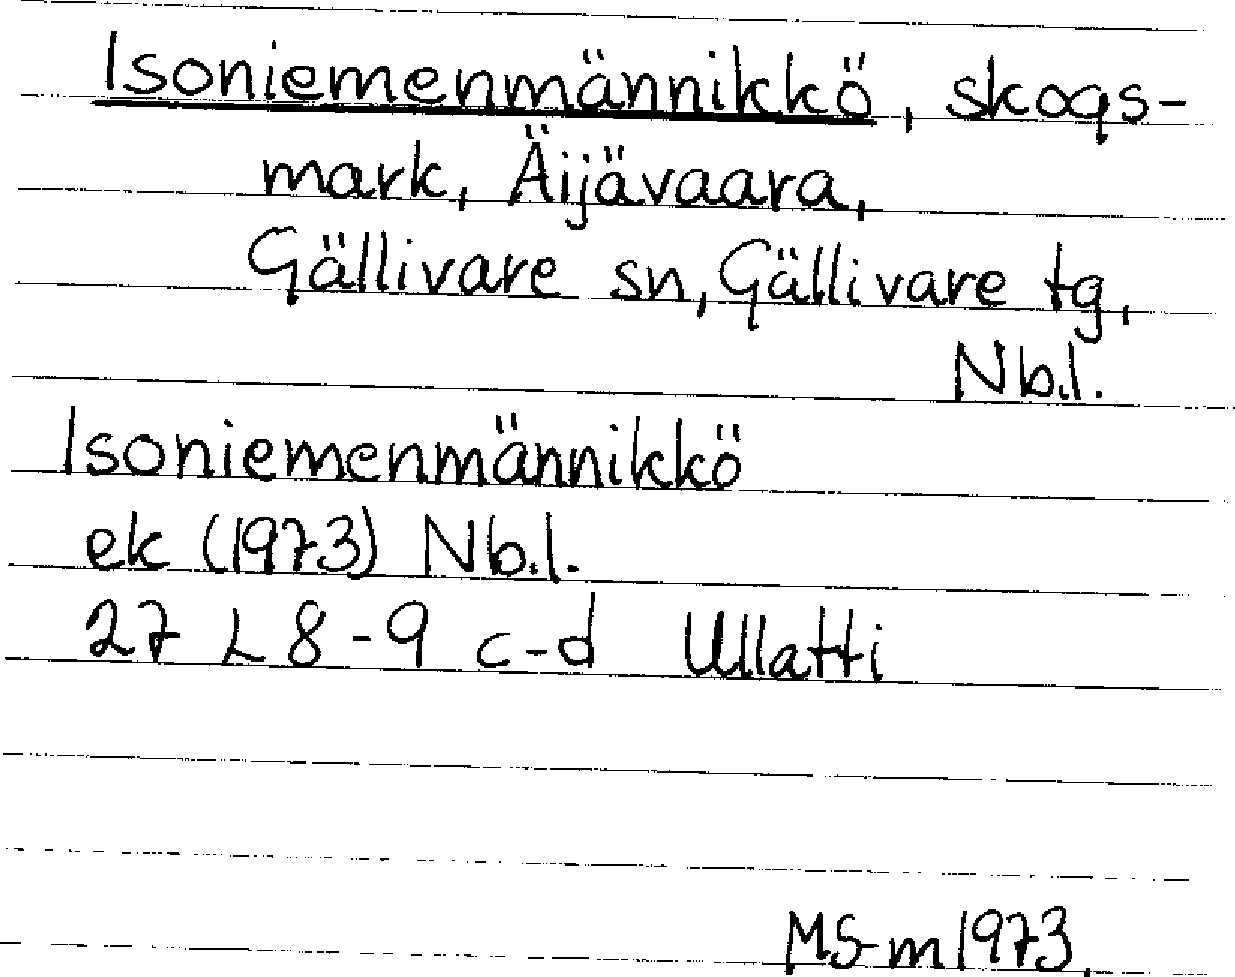 Isoniemenmännikkö, skogs-
mark, Äijävaara,
Gällivare sn, Gällivare tg,
Nb.l.
Isoniemenmännikkö
ek (1973) Nb.l.
27 L 8-9 c-d Ullatti
MS-m 1973.